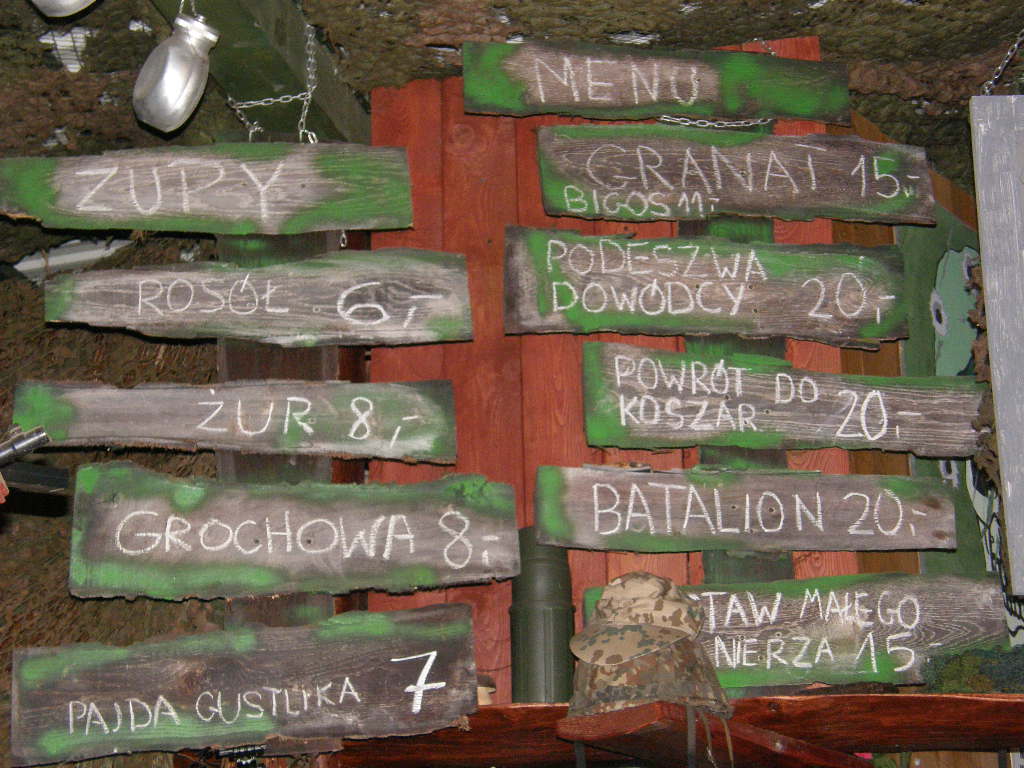 MENU
ZUPY
ROSÓŁ 6,-
ŻUR 8,-
GROCHOWA 8,-
PAJDA GUSTLIKA 7
GRANAT 15,-
BIGOS 11,-
PODESZWA
DOWÓDCY 20,-
POWRÓT DO
KOSZAR 20,-
BATALION 20,-
TAW MAŁEGO
NIERZA 15